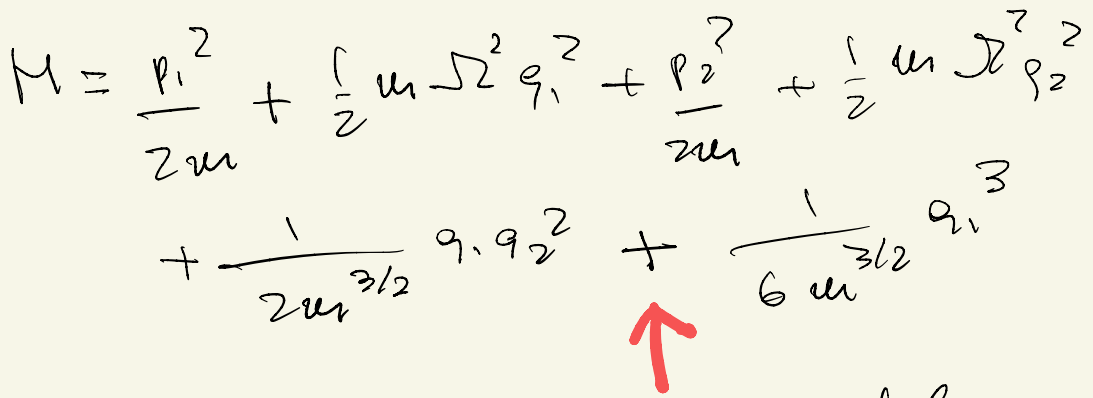 H = p₁²/2m + 1/2 m Ω² q₁² + p₂²/2m + 1/2 m Ω² q₂²
+ 1/(2m^{3/2}) q₁ q₂² + 1/(6 m^{3/2}) q₁³